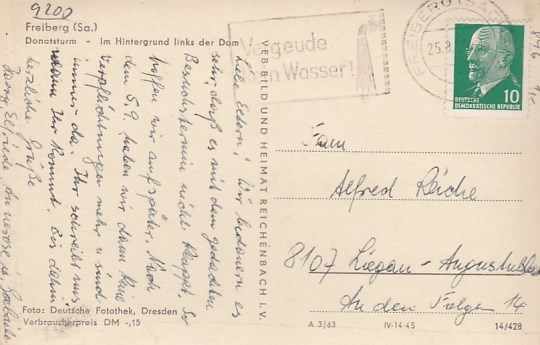 9200
Freiberg (Sa.)
Donatsturm - Im Hintergrund links der Dom
Liebe Eltern! Wir bedauern es
sehr, daß es mit dem gedachten
Besuchstermin nicht klappt. So
hoffen wir auf später. Nach
dem 5.9. haben wir dann keine
Verpflichtungen mehr u. sind
immer da. Ihr schreibt uns
wann Ihr kommt. Bis dahin
herzliche Grüße
Elfriede
Foto: Deutsche Fotothek, Dresden
Verbraucherpreis DM -,15
VEB BILD UND HEIMAT REICHENBACH I. V.
Vergeude
Wasser!
FREIBERG (SACHS)
25.8
DEUTSCHE
DEMOKRATISCHE REPUBLIK
10
Fam
Alfred Reiche
8107 Liegau-Augustusbad
An den Folgen 14
A 3/63
IV-14-45
14/428